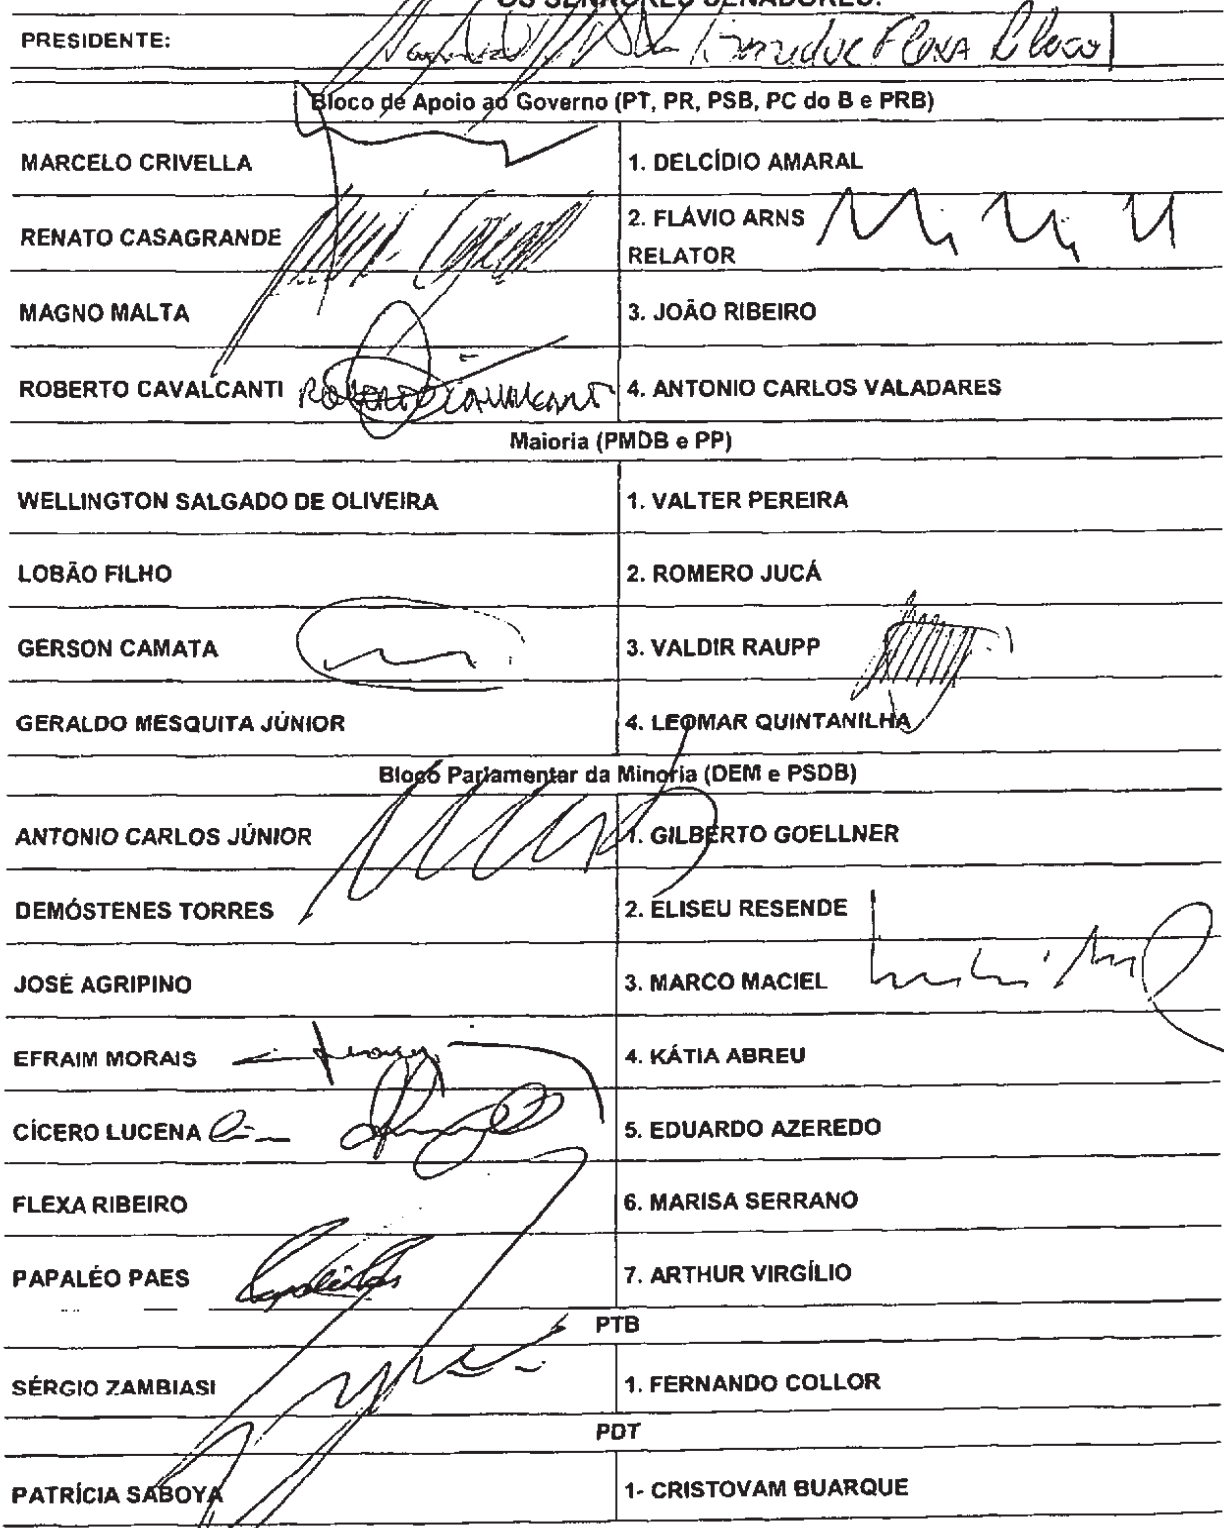 OS SENHORES SENADORES:
PRESIDENTE:
Bloco de Apoio ao Governo (PT, PR, PSB, PC do B e PRB)
MARCELO CRIVELLA
1. DELCÍDIO AMARAL
RENATO CASAGRANDE
2. FLÁVIO ARNS
RELATOR
MAGNO MALTA
3. JOÃO RIBEIRO
ROBERTO CAVALCANTI Roberto Cavalcanti
4. ANTONIO CARLOS VALADARES
Maioria (PMDB e PP)
WELLINGTON SALGADO DE OLIVEIRA
1. VALTER PEREIRA
LOBÃO FILHO
2. ROMERO JUCÁ
GERSON CAMATA
3. VALDIR RAUPP
GERALDO MESQUITA JÚNIOR
4. LEOMAR QUINTANILHA
Bloco Parlamentar da Minoria (DEM e PSDB)
ANTONIO CARLOS JÚNIOR
1. GILBERTO GOELLNER
DEMÓSTENES TORRES
2. ELISEU RESENDE
JOSÉ AGRIPINO
3. MARCO MACIEL
EFRAIM MORAIS
4. KÁTIA ABREU
CÍCERO LUCENA
5. EDUARDO AZEREDO
FLEXA RIBEIRO
6. MARISA SERRANO
PAPALÉO PAES
7. ARTHUR VIRGÍLIO
PTB
SÉRGIO ZAMBIASI
1. FERNANDO COLLOR
PDT
PATRÍCIA SABOYA
1- CRISTOVAM BUARQUE